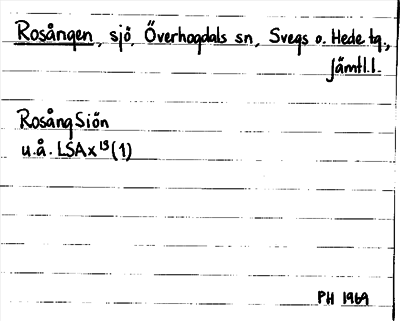 Rosången, sjö, Överhogdals sn, Svegs o. Hede tg,
Jämtl.l.
RosångSiön
u.å. LSAx¹³(1)
PH 1969